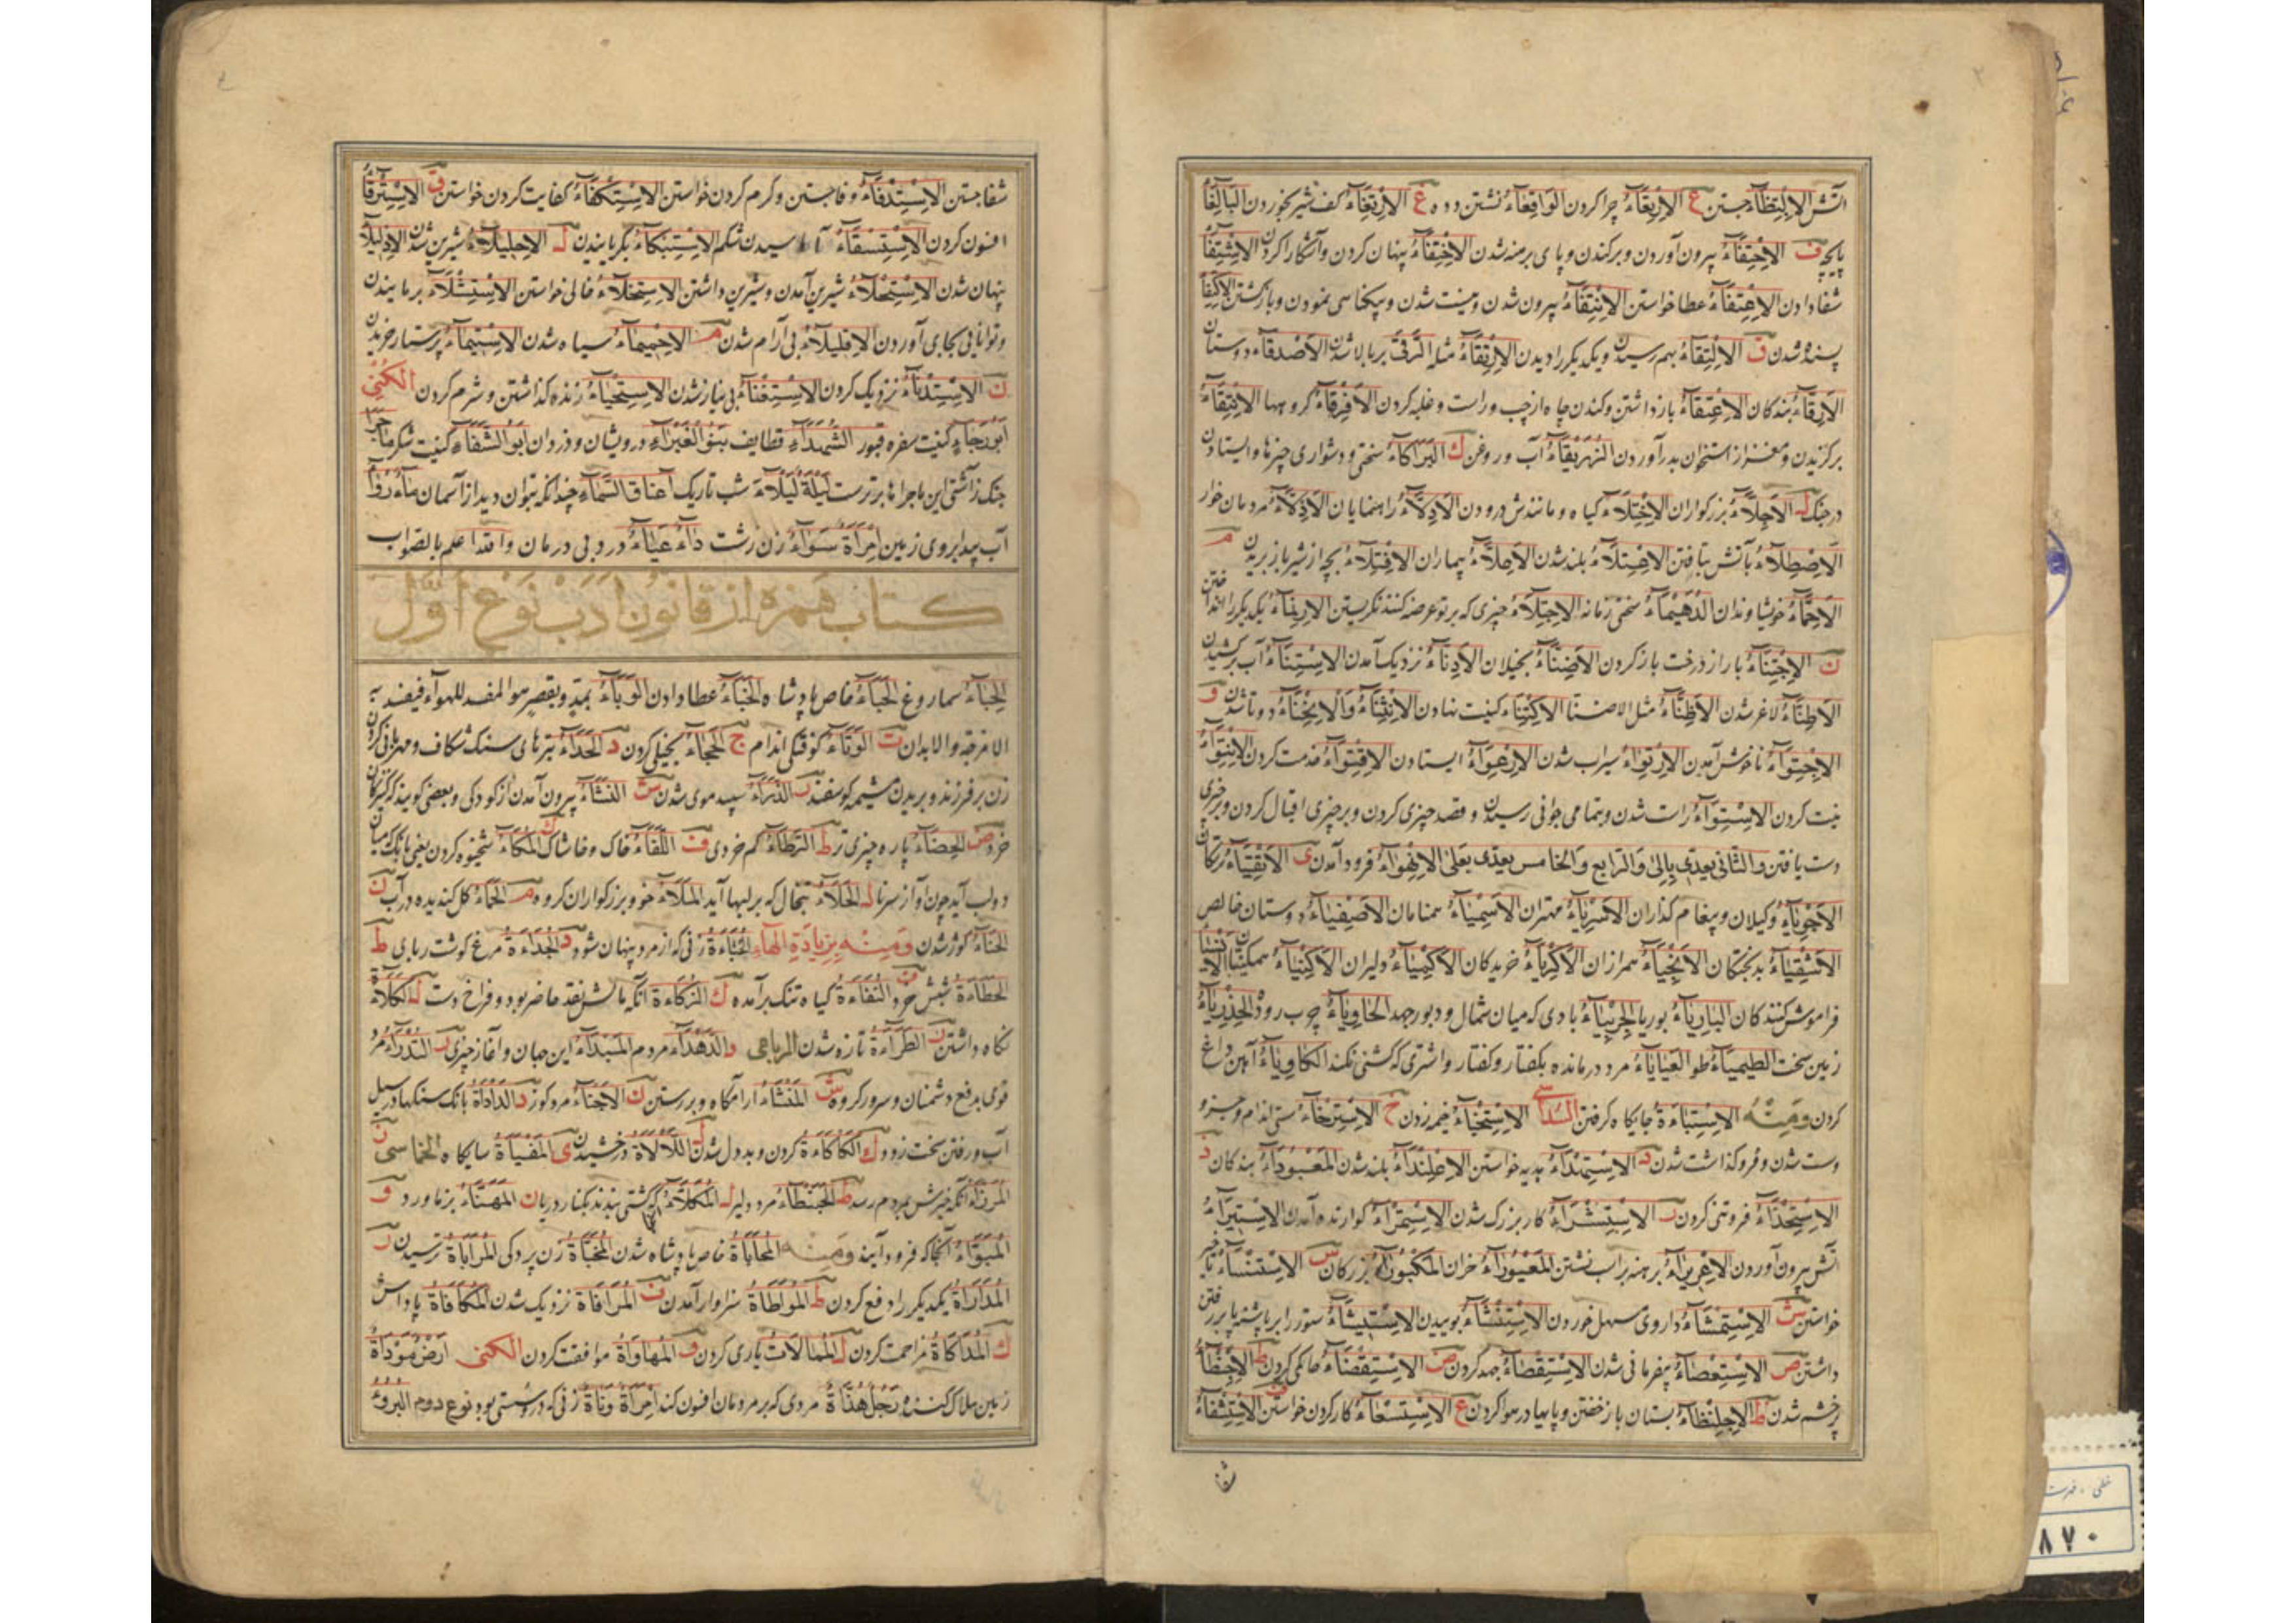 آتش الاِلْتِظَاءُ جستن ع الاِرْتِعَاءُ چرا کردن الوَاقِعَاءُ نشتن دده غ الاِرْتِغَاءُ کف شیر بخوردن
پایچه ف الاِحْتِفَاءُ بیرون آوردن و برکندن و پای برهنه شدن الاِخْتِفَاءُ پنهان کردن و آشکارا کردن الاِشْتِفَا
شفا دادن الاِعْتِفَاءُ عطا خواستن الاِنْتِفَاءُ بیرون شدن و نیست شدن و بیکناسی نمودن و بازکشتن الاِکْتِفَا
پسنده شدن ق الاِلْتِقَاءُ بهم رسیدن و یکدیکر را دیدن الاِرْتِقَاءُ مثله التَّرَقِّی بر بالا شدن الاَصْدِقَاءُ دوستان
الاَرِقَّاءُ بندکان الاِعْتِقَاءُ بازداشتن و کندن چاه از چپ و راست و غلبه کردن الاَفْرِقَاءُ کروهها الاِنْتِقَاءُ
برکزیدن و مغز از استخوان بدر آوردن آب و روغن ك البَرَاکَاءُ سختی و دشواری چیزها و ایستادن
در جنک ل الاَجِلَّاءُ بزرکواران الاِخْتِلَاءُ کیاه و مانندش درودن الاَدِلَّاءُ راهنمایان الاَذِلَّاءُ مردمان خوار
الاِصْطِلَاءُ بآتش تافتن الاِعْتِلَاءُ بلند شدن الاَعِلَّاءُ بیماران الاِفْتِلَاءُ بچه از شیر باز بریدن م
الاَحِمَّاءُ خویشاوندان الدُّهَیْمَاءُ سختی زمانه الاِجْتِلَاءُ چیزی که بر تو عرضه کنند نکریستن الاِرْتِمَاءُ یکدیکر را انداختن
ن الاِجْتِنَاءُ بار از درخت باز کردن الاَضِنَّاءُ بخیلان الاِدِّنَاءُ نزدیک آمدن الاِسْتِنَاءُ آب برکشیدن
لاغر شدن الاَظِنَّاءُ مثل الاِکْتِنَاءُ کنیت نهادن الاِنْثِنَاءُ وَالاِنْحِنَاءُ دوتا شدن و
الاِجْتِوَاءُ ناخوش آمدن الاِرْتِوَاءُ سیراب شدن الاِرْعِوَاءُ ایستادن الاِقْتِوَاءُ خدمت کردن الاِنْتِوَاءُ
نیت کردن الاِسْتِوَاءُ راست شدن و بتمامی جوانی رسیدن و قصد چیزی کردن و بر چیزی اقبال کردن و بر چیزی
دست یافتن والثانی یعدی بالی والرابع والخامس یعدی بعلی فرود آمدن ی الاَتْقِیَاءُ
الاَجْرِیَاءُ وکیلان و پیغام کذاران الاَسْرِیَاءُ مهتران الاَسْمِیَاءُ همنامان الاَصْفِیَاءُ دوستان خالص
الاَشْقِیَاءُ بدبختکان الاَنْجِیَاءُ همرازان الاَکْرِیَاءُ خریدکان الاَکْمِیَاءُ دلیران
فراموش کنندکان البَارِیَاءُ بوریا الجِرْبِیَاءُ بادی که میان شمال و دبور جهد الحَاوِیَاءُ چرب رود
زمین سخت العَیَایَاءُ مرد درمانده بکفتار و کفتار و اشتری که کشنی نکند الکَاوِیَاءُ آهین داغ
کردن وَمِنْهُ الاِسْتِبَاءَةُ جایکاه کرفتن السُّدَاسِی الاِسْتِخْبَاءُ خیمه زدن خ الاِسْتِرْخَاءُ سستی اندام و جز او
و سست شدن و فروکذاشت شدن د الاِسْتِهْدَاءُ هدیه خواستن الاِعْلِنْدَاءُ بلند شدن المَعْبُودَاءُ بندکان ذ
الاِسْتِخْذَاءُ فروتنی کردن ر الاِسْتِشْرَاءُ کار بزرک شدن الاِسْتِمْرَاءُ کوارنده آمدن
آتش بیرون آوردن الاِعْرِیرَاءُ برهنه بر اسب نشتن المَعْیُورَاءُ خران المَکْبُورَاءُ بزرکان س الاِسْتِنْسَاءُ
خواستن ش الاِسْتِمْشَاءُ داروی مسهل خوردن الاِسْتِنْشَاءُ بوییدن ستور را بر پاشنه پا بر رفتن
داشتن ص الاِسْتِعْصَاءُ بیفرمانی شدن الاِسْتِقْصَاءُ جهد کردن ض الاِسْتِقْضَاءُ حاکمی کردن
پر خشم شدن ظ الاِجْلِنْظَاءُ بستان باز خفتن و پایها در هوا کردن ع الاِسْتِسْعَاءُ کار کردن خواستن ف الاِسْتِشْفَاءُ
شفا جستن الاِسْتِدْفَاءُ وفا جستن و کرم کردن خواستن الاِسْتِکْفَاءُ کفایت کردن خواستن ق الاِسْتِرْقَا
افسون کردن الاِسْتِسْقَاءُ آماسیدن شکم الاِسْتِبْکَاءُ بکریانیدن ل الاِحْلِیلَاءُ شیرین شدن
پنهان شدن الاِسْتِحْلَاءُ شیرین آمدن و شیرین داشتن الاِسْتِخْلَاءُ خالی خواستن
و توانایی بجای آوردن بی آرام شدن م الاِحْمِیمَاءُ سیاه شدن الاِسْتِیمَاءُ پرستار خریدن
ن الاِسْتِدْنَاءُ نزدیک کردن الاِسْتِغْنَاءُ بی نیاز شدن الاِسْتِحْیَاءُ زنده کذاشتن و شرم کردن الکُنَی
اَبُو رَجَاءٍ کنیت سفره قبور الشُّهَدَاءِ قطایف بَنُو الغَبْرَاءِ درویشان و دزدان اَبُو الشِّفَاءِ کنیت شکر
جنک زآشتی این ماجراها برترست لَیْلَةٌ لَیْلَاءُ شب تاریک اَعْنَاقُ السَّمَاءِ چندانکه بتوان دید از آسمان
آب پیدا بر روی زمین اِمْرَأَةٌ سَوْآءُ زن زشت دَاءٌ عَیَاءٌ درد بی درمان والله اعلم بالصواب
کتاب همزه از قانون ادب نوع اول
سماروغ الحَبَاءُ خاص پادشاه عطا دادن الوَبَاءُ بمد و بقصر هو المفسد للهواء فیفسد به
الامزجة والابدان ث الوَثَاءُ کوفتکی اندام ج الحَجَاءُ بخیلی کردن د الحَدَاءُ تبرهای سنک شکاف و مهربانی کردن
زن بر فرزند و بریدن مشیمه کوسفند ر الذَّرَاءُ سپید موی شدن ش النَّشَاءُ بیرون آمدن از کودکی و بعضی کویند
خرد پاره چیزی ط الرَّطَاءُ کم خردی ف اللَّفَاءُ خاک و خاشاک ك المُکَاءُ یعنی بانک میان
دو لب آید چون آواز سرنا ل الحَلَاءُ تبخال که بر لبها آید المَلَاءُ خو و بزرکواران کروه م الحَمَاءُ کل کندیده در آب ن
کوژ شدن وَمِنْهُ بِزِیَادَةِ الهَاءِ الخُبَاءَةُ زنی که از مرد پنهان شود د الحِدَاءَةُ مرغ کوشت ربای ط
الحَطَاءَةُ شبش خرد ف کیاه تنک برآمده ك الزُّکَاءَةُ آنکه مالش نقد حاضر بود و فراخ دست ل الکَلَاءَةُ
نکاه داشتن الطَّرَاءَةُ تازه شدن الرباعی د الدَّهْدَاءُ مردم المَبْدَاءُ این جهان و آغاز چیزی ر التُّدْرَاءُ مرد
قوی بدفع دشمنان و سرور کروه ش المَنْشَاءُ آرامکاه و بررستن ن الاَجْنَاءُ مرد کوز د الدَّأْدَأَةُ بانک سنکها در سیل
آب و رفتن سخت زود ك الکَأْکَأَةُ کردن و بددل شدن ل اللَّأْلَأَةُ درخشیدن ی المَفْیَأَةُ سایکاه الخماسی
آنکه خیرش بمردم رسد ط الحَبَنْطَاءُ مرد دلیر ل المُکَلَّاءُ کی کشتی ببندند بکنار دریا ن المُهَنَّاءُ بزماورد و
المُبَوَّاءُ آنجا که فرود آیند وَمِنْهُ المُحَابَاةُ خاص پادشاه شدن المُخَبَّأَةُ زن پردکی المُرَابَاةُ ترسیدن ر
المُدَارَأَةُ یکدیکر را دفع کردن ط المُوَاطَأَةُ سزاوار آمدن ف المُرَافَأَةُ نزدیک شدن المُکَافَأَةُ پاداش
ك المُدَاکَأَةُ مزاحمت کردن ل المُمَالَاتُ یاری کردن و المُهَاوَأَةُ موافقت کردن الکُنَی اَرْضٌ مُوَدَّأَةٌ
زمین هلاک کننده رَجُلٌ هُذَأَةٌ مردی که بر مردمان افسون کند اِمْرَأَةٌ وَنَاةٌ زنی که درو سستی بود نوع دوم
خطی . فهرست
۸۷۰